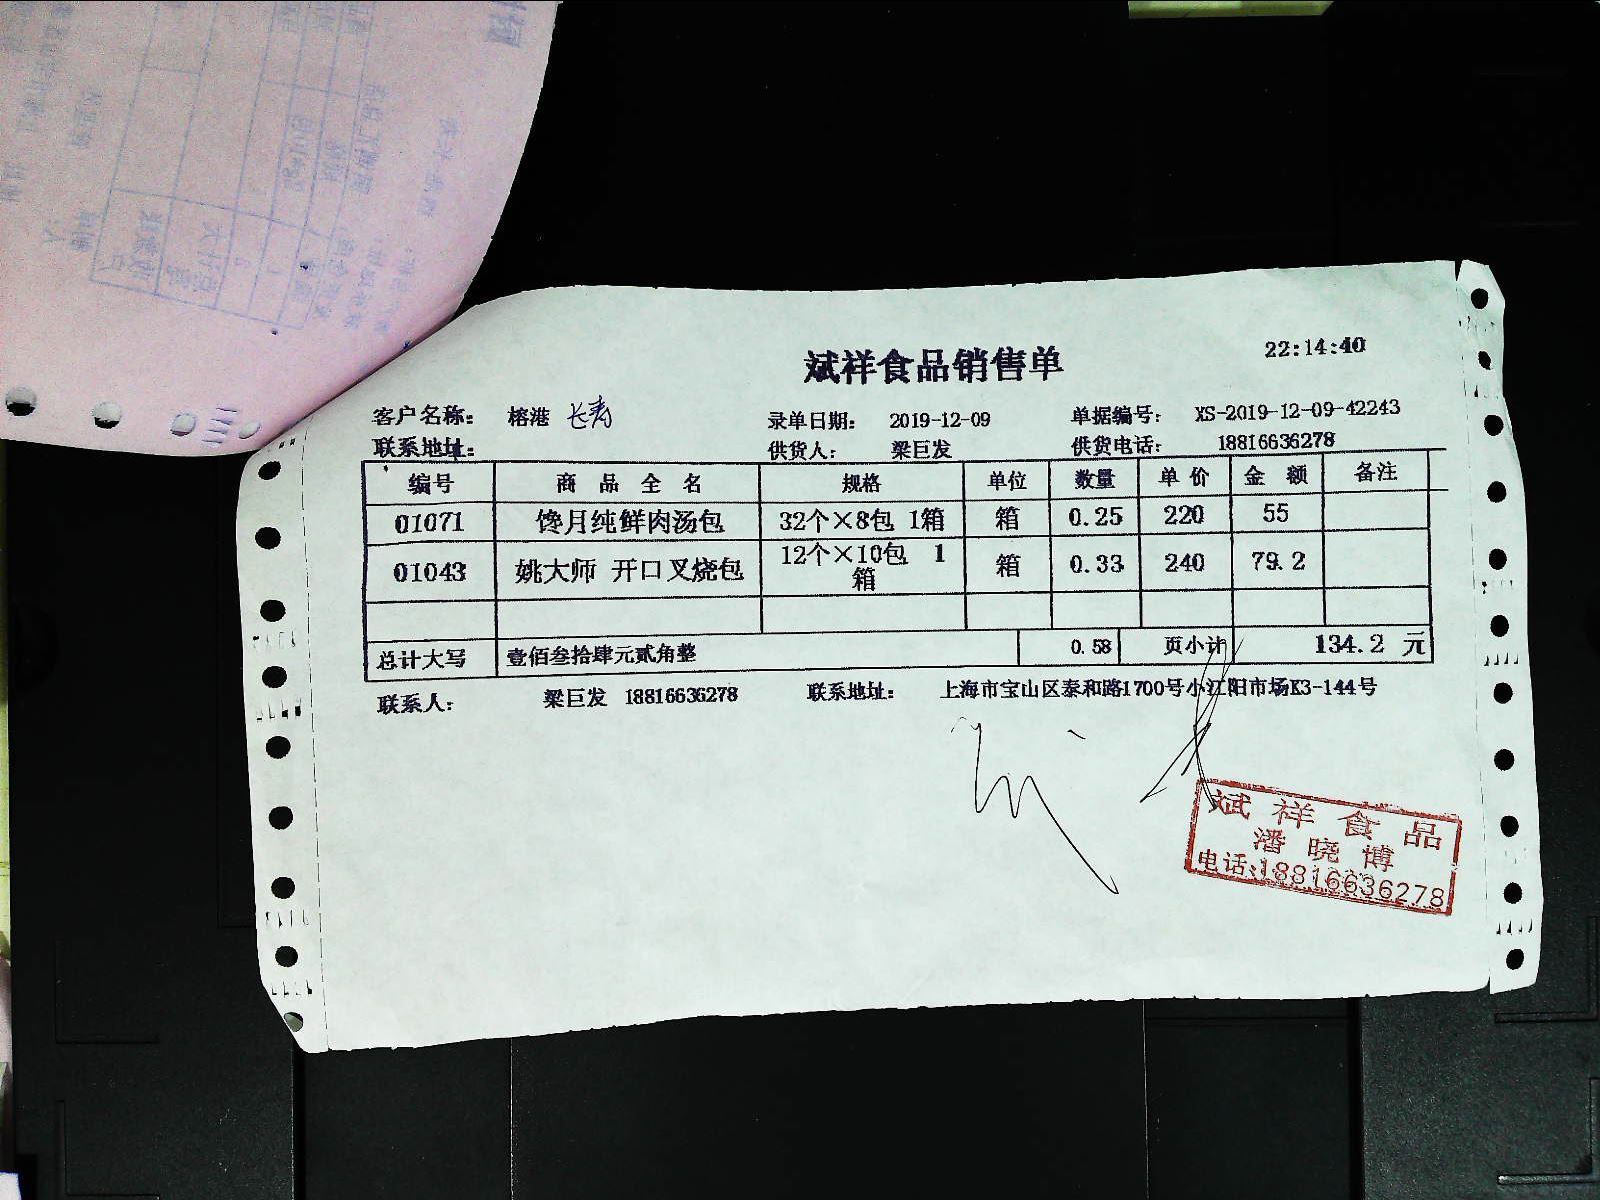 斌祥食品销售单
22:14:40
客户名称: 榕港 长寿 录单日期: 2019-12-09 单据编号: XS-2019-12-09-42243
联系地址: 供货人: 梁巨发 供货电话: 18816636278
编号 商品全名 规格 单位 数量 单价 金额 备注
01071 馋月纯鲜肉汤包 32个×8包 1箱 箱 0.25 220 55
01043 姚大师 开口叉烧包 12个×10包 1箱 箱 0.33 240 79.2
总计大写 壹佰叁拾肆元贰角整 0.58 页小计 134.2 元
联系人: 梁巨发 18816636278 联系地址: 上海市宝山区泰和路1700号小江阳市场K3-144号
斌祥食品
潘晓博
电话:18816636278